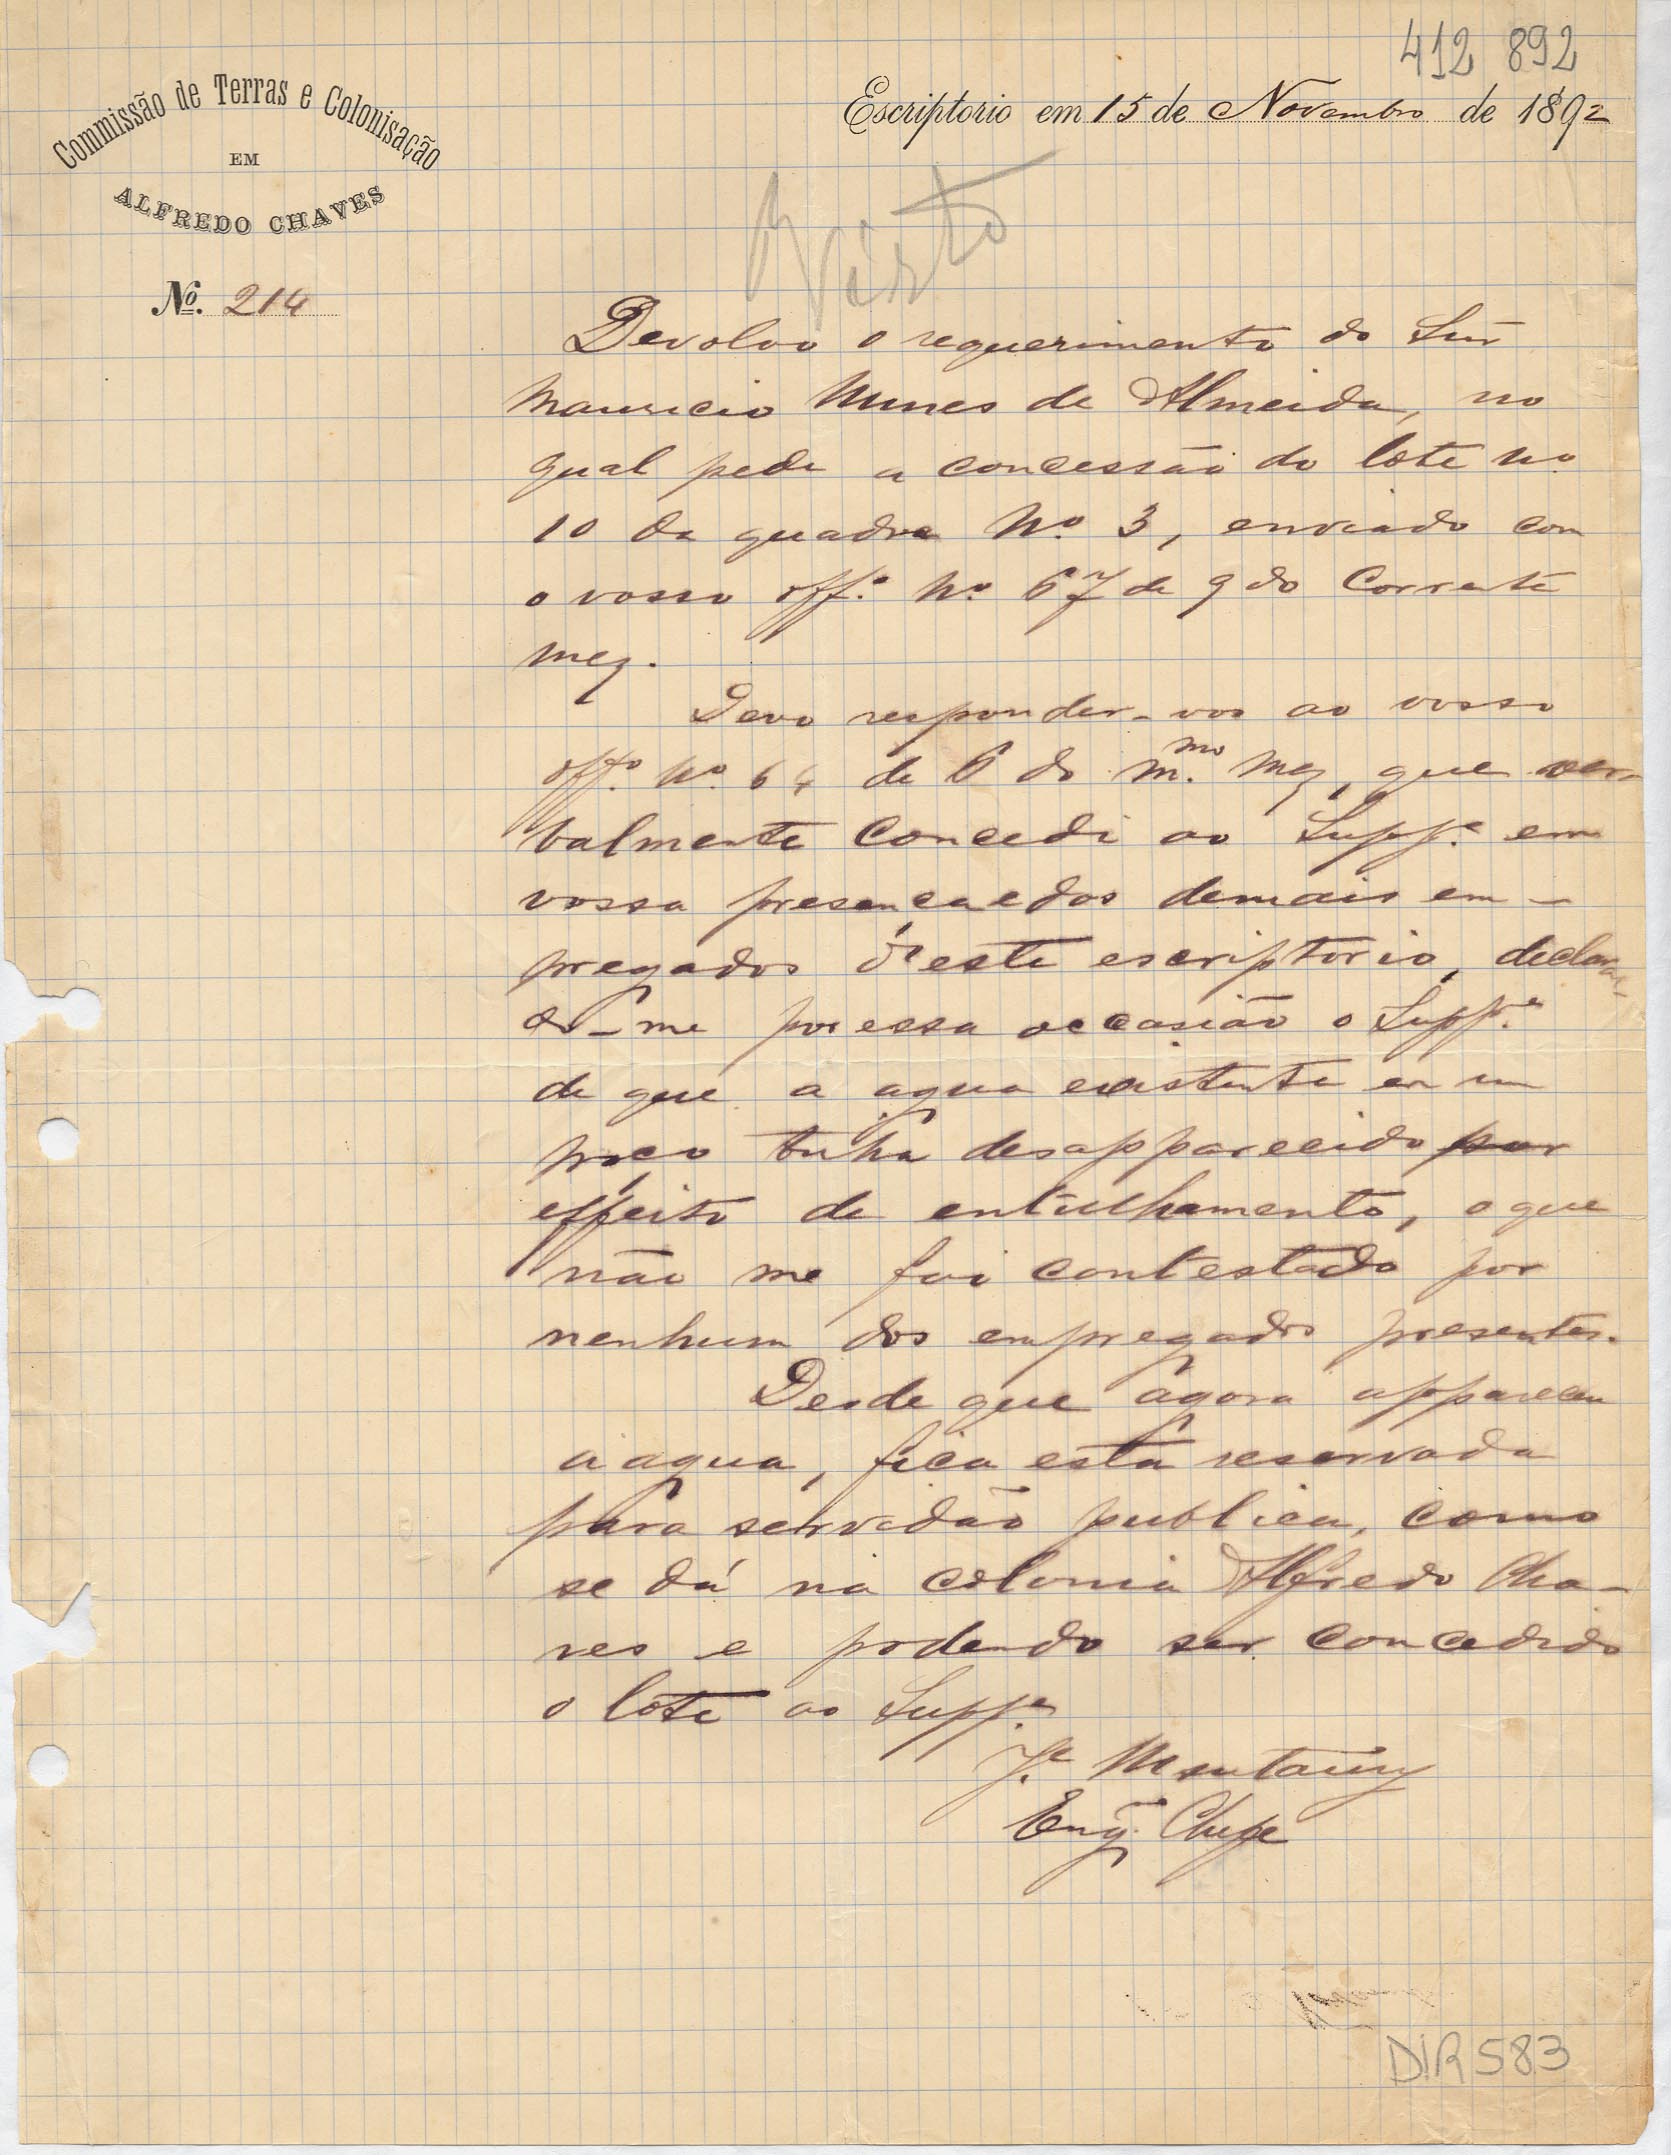 412 892
Commissão de Terras e Colonisação
EM
ALFREDO CHAVES
Escriptorio em 15 de Novembro de 1892
Nº. 214
Visto
Devolvo o requerimento do Snr
Mauricio Nunes de Almeida, no
qual pede a concessão do lote nº
10 da quadra Nº 3, enviado com
o vosso offº Nº 67 de 9 do Corrente
mez.
Devo responder-vos ao vosso
offº Nº 64 de 6 do m.mo mez, que ver-
balmente concedi ao Suppe em
vossa presença e dos demais em-
pregados d'este escriptorio, declaran-
do-me por essa occasião o Suppe
de que a agua existente em um
poço tinha desapparecido por
effeito de entulhamento, o que
não me foi contestado por
nenhum dos empregados presentes.
Desde que agora appareceu
a agua, fica esta reservada
para servidão publica, como
se dá na colonia Alfredo Cha-
ves e podendo ser concedido
o lote ao Suppe
Je Montaury
Engº Chefe
DIR 583